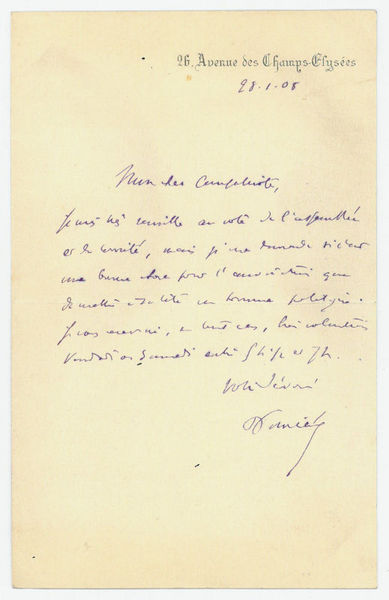 26, Avenue des Champs-Elysées
28.1.08
Mon cher Compatriote,
Je suis très sensible au vote de l'assemblée
et du comité, mais je me demande si c'est
une bonne chose pour l'association que
de mettre à sa tête un homme politique.
Je vous recevrai, en tout cas, très volontiers
Vendredi ou Samedi entre 5h 1/2 et 7h.
Votre dévoué